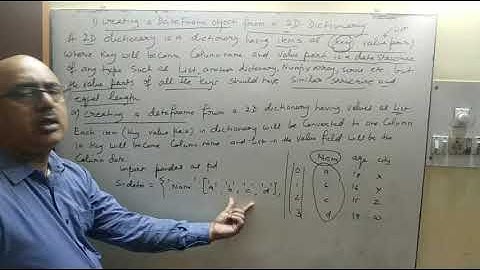 1) Creating a Dataframe object from a 2D Dictionary
A 2D dictionary is a dictionary having items as (key, value pair)
List
where key will become Column name and value part is a data structure
of any type such as List, another dictionary, Numpy array, series etc but
the value parts of all the keys should have similar structure and
equal length
a) creating a dataframe from a 2D dictionary having values as List
Each item (key value pair) in dictionary will be converted to one column
ie key will become Column name and List in the value field will be the
Column data.
import pandas as pd
S=data = { 'Name' : ['a', 'b', 'c', 'd'],
Nam age city
0 a X
1 b 16 Y
2 c 15 Z
3 d 19 W